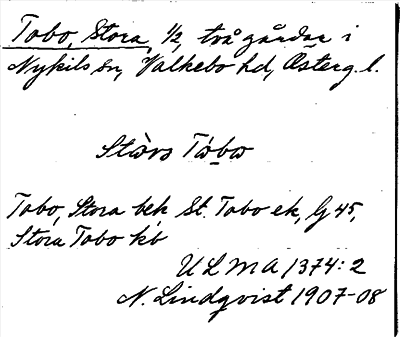 Tobo, Stora, 1/2, två gårdar i
Nykils sn, Valkebo hd, Österg. l.
Stòrs Tòbo
Tobo, Stora bek St. Tobo ek, G 45,
Stora Tobo kb
ULMA 1374:2
N. Lindqvist 1907-08